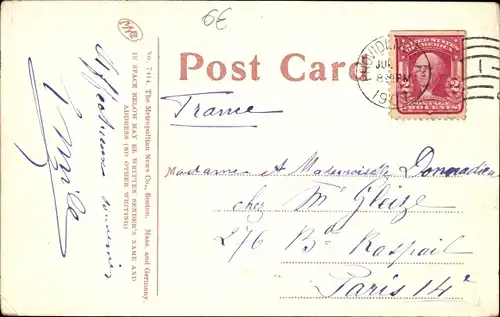 6€
Post Card
PROVIDEN
JUL
8 30 PM
19
UNITED STATES OF AMERICA
2 2
POSTAGE
TWO CENTS
No. 7414. The Metropolitan News Co., Boston, Mass. and Germany.
IN SPACE BELOW MAY BE WRITTEN SENDER'S NAME AND
ADDRESS (NO OTHER WRITING)
Affectueux souvenir
France
Madame et Mademoiselle Donnadieu
chez Mr Gleize
276 Bd Raspail
Paris 14e